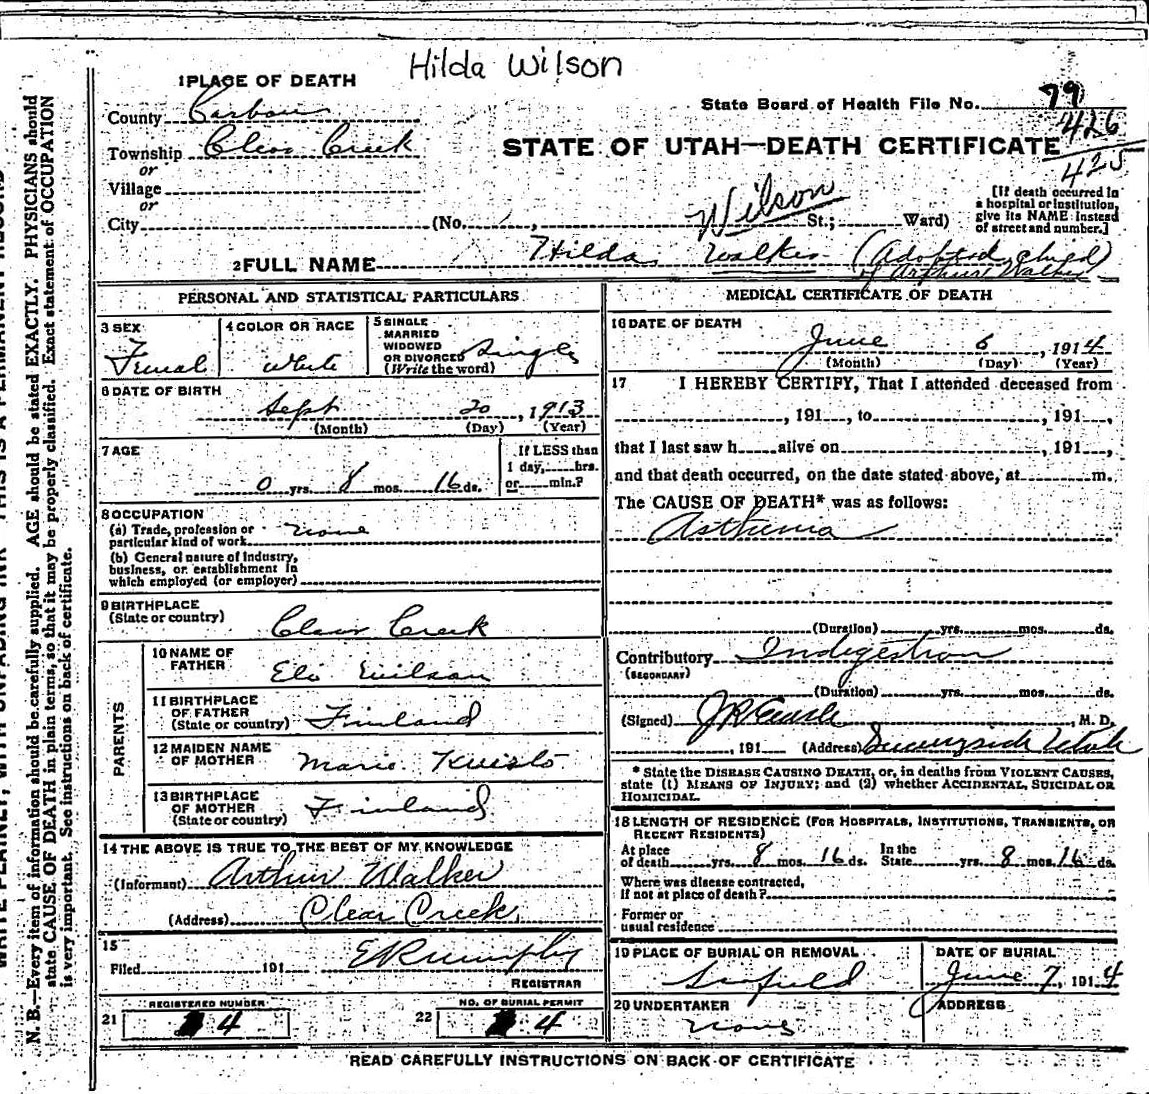 Hilda Wilson
1 PLACE OF DEATH
County Carbon
State Board of Health File No. 79
426
425
Township Clear Creek
or
STATE OF UTAH—DEATH CERTIFICATE
Village
or
City (No. St.; Ward)
[If death occurred in a hospital or institution, give its NAME instead of street and number.]
Wilson
2 FULL NAME Hilda Walker (Adopted child of Arthur Walker)
PERSONAL AND STATISTICAL PARTICULARS
3 SEX
Femal
4 COLOR OR RACE
White
5 SINGLE
MARRIED
WIDOWED
OR DIVORCED
(Write the word)
Single
6 DATE OF BIRTH
Sept 20, 1913
(Month) (Day) (Year)
7 AGE
0 yrs. 8 mos. 16 ds.
If LESS than
1 day, hrs.
or min.?
8 OCCUPATION
(a) Trade, profession or
particular kind of work none
(b) General nature of Industry,
business, or establishment in
which employed (or employer)
9 BIRTHPLACE
(State or country)
Clear Creek
PARENTS
10 NAME OF
FATHER
Eli Wilson
11 BIRTHPLACE
OF FATHER
(State or country)
Finland
12 MAIDEN NAME
OF MOTHER
Marie Kuisto
13 BIRTHPLACE
OF MOTHER
(State or country)
Finland
14 THE ABOVE IS TRUE TO THE BEST OF MY KNOWLEDGE
(Informant) Arthur Walker
(Address) Clear Creek
15
Filed 191
REGISTRAR
REGISTERED NUMBER
21 4
NO. OF BURIAL PERMIT
22 4
MEDICAL CERTIFICATE OF DEATH
16 DATE OF DEATH
June 6, 1914
(Month) (Day) (Year)
17 I HEREBY CERTIFY, That I attended deceased from
, 191 , to , 191 ,
that I last saw h alive on , 191 ,
and that death occurred, on the date stated above, at m.
The CAUSE OF DEATH* was as follows:
Asthma
(Duration) yrs. mos. ds.
Contributory Indigestion
(SECONDARY)
(Duration) yrs. mos. ds.
(Signed) , M. D.
, 191 (Address) Sunnyside Utah
* State the DISEASE CAUSING DEATH, or, in deaths from VIOLENT CAUSES,
state (1) MEANS OF INJURY; and (2) whether ACCIDENTAL, SUICIDAL OR
HOMICIDAL.
18 LENGTH OF RESIDENCE (FOR HOSPITALS, INSTITUTIONS, TRANSIENTS, OR
RECENT RESIDENTS)
At place In the
of death yrs. 8 mos. 16 ds. State yrs. 8 mos. 16 ds.
Where was disease contracted,
if not at place of death?
Former or
usual residence
19 PLACE OF BURIAL OR REMOVAL
Scofield
DATE OF BURIAL
June 7, 1914
20 UNDERTAKER
none
ADDRESS
READ CAREFULLY INSTRUCTIONS ON BACK OF CERTIFICATE
N. B.—Every item of information should be carefully supplied. AGE should be stated EXACTLY. PHYSICIANS should
state CAUSE OF DEATH in plain terms, so that it may be properly classified. Exact statement of OCCUPATION
is very important. See instructions on back of certificate.